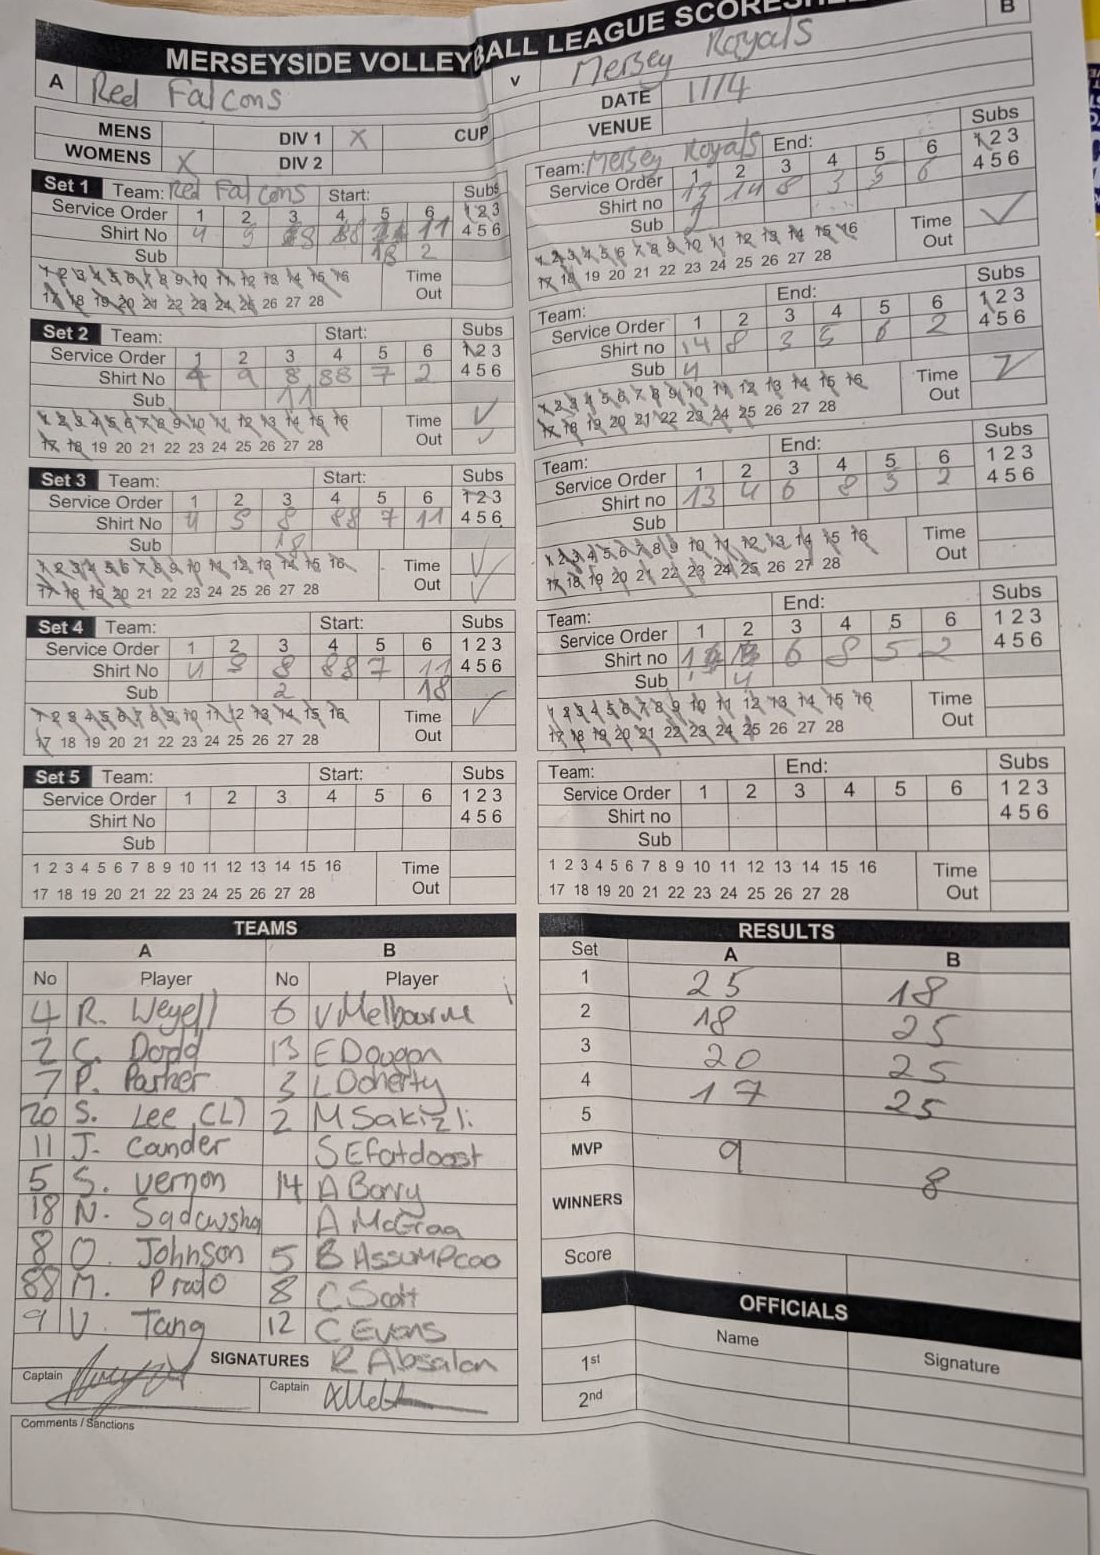 MERSEYSIDE VOLLEYBALL LEAGUE
A Red Falcons v Mersey Royals B
DATE 11/4
VENUE
MENS DIV 1 X CUP
WOMENS X DIV 2
Set 1 Team: Red Falcons Start: Subs
Service Order 1 2 3 4 5 6 1 2 3
Shirt No 4 9 11 4 5 6
Sub 18 2
1 2 3 4 5 6 7 8 9 10 11 12 13 14 15 16 Time
17 18 19 20 21 22 23 24 25 26 27 28 Out
Team: Mersey Royals End: Subs
Service Order 1 2 3 4 5 6 1 2 3
Shirt no 13 14 8 3 5 6 4 5 6
Sub
1 2 3 4 5 6 7 8 9 10 11 12 13 14 15 16 Time
17 18 19 20 21 22 23 24 25 26 27 28 Out
Set 2 Team: Start: Subs
Service Order 1 2 3 4 5 6 1 2 3
Shirt No 4 9 8 88 7 2 4 5 6
Sub 11
1 2 3 4 5 6 7 8 9 10 11 12 13 14 15 16 Time
17 18 19 20 21 22 23 24 25 26 27 28 Out
Team: End: Subs
Service Order 1 2 3 4 5 6 1 2 3
Shirt no 14 8 3 5 6 2 4 5 6
Sub 4
1 2 3 4 5 6 7 8 9 10 11 12 13 14 15 16 Time
17 18 19 20 21 22 23 24 25 26 27 28 Out
Set 3 Team: Start: Subs
Service Order 1 2 3 4 5 6 1 2 3
Shirt No 4 5 8 88 7 11 4 5 6
Sub 18
1 2 3 4 5 6 7 8 9 10 11 12 13 14 15 16 Time
17 18 19 20 21 22 23 24 25 26 27 28 Out
Team: End: Subs
Service Order 1 2 3 4 5 6 1 2 3
Shirt no 13 4 6 8 5 2 4 5 6
Sub
1 2 3 4 5 6 7 8 9 10 11 12 13 14 15 16 Time
17 18 19 20 21 22 23 24 25 26 27 28 Out
Set 4 Team: Start: Subs
Service Order 1 2 3 4 5 6 1 2 3
Shirt No 4 8 88 7 11 4 5 6
Sub 2 18
1 2 3 4 5 6 7 8 9 10 11 12 13 14 15 16 Time
17 18 19 20 21 22 23 24 25 26 27 28 Out
Team: End: Subs
Service Order 1 2 3 4 5 6 1 2 3
Shirt no 6 8 5 2 4 5 6
Sub 4
1 2 3 4 5 6 7 8 9 10 11 12 13 14 15 16 Time
17 18 19 20 21 22 23 24 25 26 27 28 Out
Set 5 Team: Start: Subs
Service Order 1 2 3 4 5 6 1 2 3
Shirt No 4 5 6
Sub
1 2 3 4 5 6 7 8 9 10 11 12 13 14 15 16 Time
17 18 19 20 21 22 23 24 25 26 27 28 Out
Team: End: Subs
Service Order 1 2 3 4 5 6 1 2 3
Shirt no 4 5 6
Sub
1 2 3 4 5 6 7 8 9 10 11 12 13 14 15 16 Time
17 18 19 20 21 22 23 24 25 26 27 28 Out
TEAMS
A B
No Player No Player
4 R. Weyell 6 V Melbourne
2 C. Dodd 13 E Dougan
7 P. Parker 3 L Doherty
20 S. Lee (L) 2 M Sakizli
11 J. Cander S Efatdoost
5 S. Vernon 14 A Barry
18 N. A McGraa
8 O. Johnson 5 B Assumpcao
88 M. Prado 8 C Scott
9 V. Tang 12 C Evans
SIGNATURES R Absalon
Captain Captain
Comments / Sanctions
RESULTS
Set A B
1 25 18
2 18 25
3 20 25
4 17 25
5
MVP 9 8
WINNERS
Score
OFFICIALS
Name Signature
1st
2nd